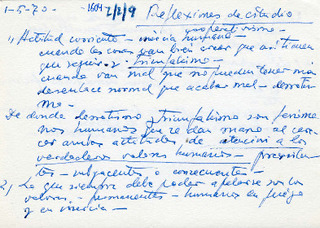 1-5-70 - 1604 2/2/9 Reflexiones de estudio
cooperativismo -
1) Actitud corriente - inercia humana -
cuando las cosas van bien creer que así tienen
que seguir y triunfalismo -
cuando van mal que no pueden tener más
desenlace normal que acaba mal - derrotis
mo -
De donde derrotismo y triunfalismo son fenóme
nos humanos que se dan mano al ca
cer ambos actitudes de atención a los
verdaderos valores humanos - presisten
tes - subyacentes o consecuentes -
2) Lo que siempre debe poder apelarse son los
valores - permanentes - humanos en juego
y en vivencia -